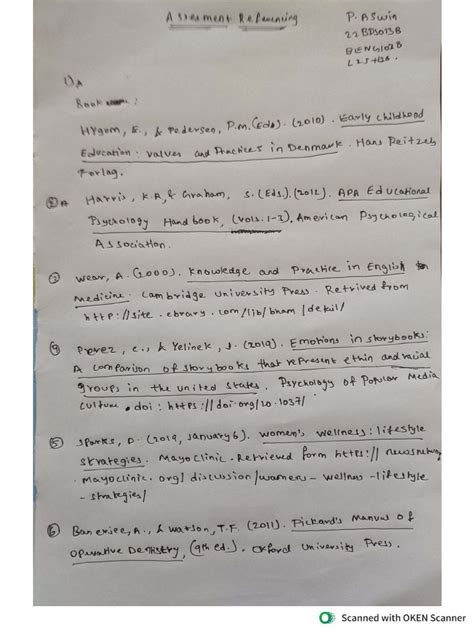 Assesment Referencing
P. ASwin
22BDS013B
BENG102B
L25+L26
1)A
Book :
Hygum, E., & Pedersen, P.M. (Eds). (2010). Early childhood
Education: values and Practices in Denmark. Hans Reitzels
Forlag.
②A Harris, K.R, & Graham, S. (Eds.). (2012). APA Educational
Psychology Handbook, (vols. 1-3), American Psychological
Association.
③ Wear, A. (2000). Knowledge and Practice in English
Medicine. Cambridge University Press. Retrived from
http://site.ebrary.com/lib/bham/detail/
④ Perez, C., & Yelinek, J. (2019). Emotions in storybooks:
A comparison of storybooks that represent ethin and racial
groups in the united states. Psychology of Popular Media
Culture. doi: https://doi.org/10.1037/
⑤ Sparks, D. (2019, January 6). women's wellness: lifestyle
strategies. Mayoclinic. Retrieved form https://newsnetwork
.mayoclinic.org/discussion/women-wellness-lifestyle
-strategies/
⑥ Banerjee, A., & Watson, T.F. (2011). Pickard's Manual of
Operative Dentistry, (9th ed.). Oxford University Press.
Scanned with OKEN Scanner